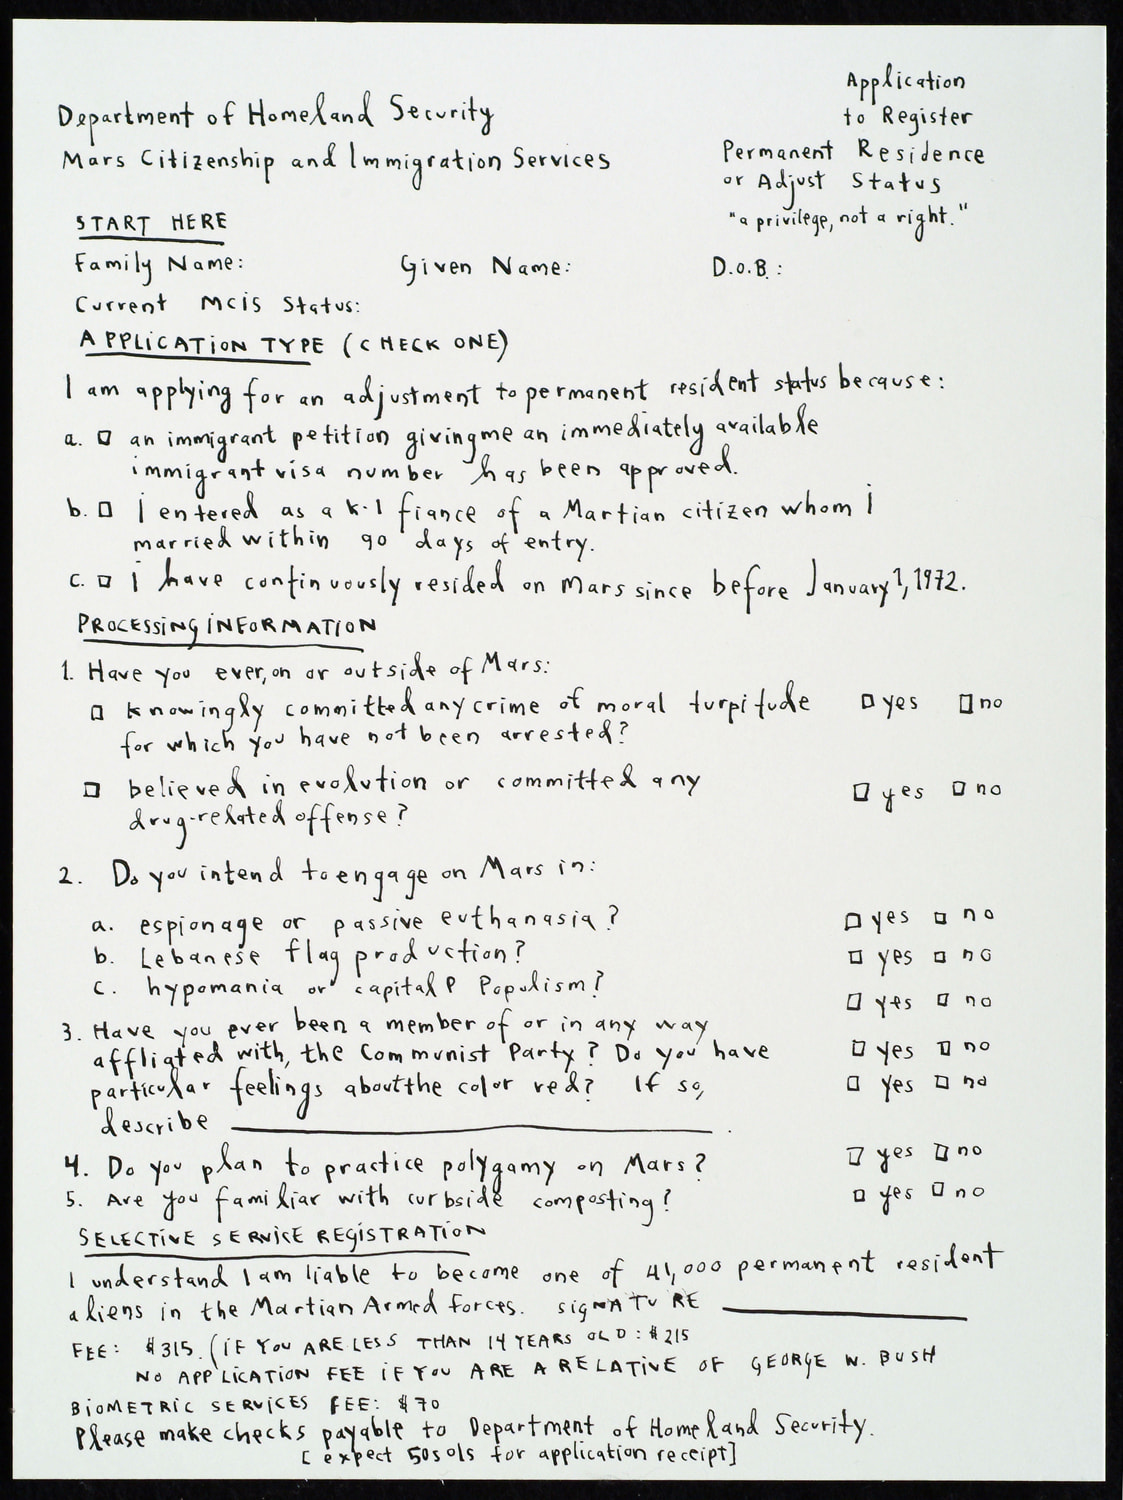 Application
to Register
Permanent Residence
or Adjust Status
"a privilege, not a right."
Department of Homeland Security
Mars Citizenship and Immigration Services
START HERE
Family Name: Given Name: D.o.B.:
Current MCiS Status:
APPLICATION TYPE (CHECK ONE)
I am applying for an adjustment to permanent resident status because:
a. □ an immigrant petition giving me an immediately available
immigrant visa number has been approved.
b. □ I entered as a K-1 fiance of a Martian citizen whom i
married within 90 days of entry.
c. □ i have continuously resided on Mars since before January 1, 1972.
PROCESSING INFORMATION
1. Have you ever, on or outside of Mars:
□ knowingly committed any crime of moral turpitude □ yes □ no
for which you have not been arrested?
□ believed in evolution or committed any □ yes □ no
drug-related offense?
2. Do you intend to engage on Mars in:
a. espionage or passive euthanasia? □ yes □ no
b. Lebanese flag production? □ yes □ no
c. hypomania or capital P Populism? □ yes □ no
3. Have you ever been a member of or in any way
affliated with, the Communist Party? Do you have □ yes □ no
particular feelings about the color red? If so, □ yes □ no
describe ____________.
4. Do you plan to practice polygamy on Mars? □ yes □ no
5. Are you familiar with curbside composting? □ yes □ no
SELECTIVE SERVICE REGISTRATION
I understand I am liable to become one of 41,000 permanent resident
aliens in the Martian Armed Forces. SIGNATURE ____________
FEE: $315. (IF YOU ARE LESS THAN 14 YEARS OLD: $215
NO APPLICATION FEE IF YOU ARE A RELATIVE OF GEORGE W. BUSH
BIOMETRIC SERVICES FEE: $70
Please make checks payable to Department of Homeland Security.
[expect 50 sols for application receipt]